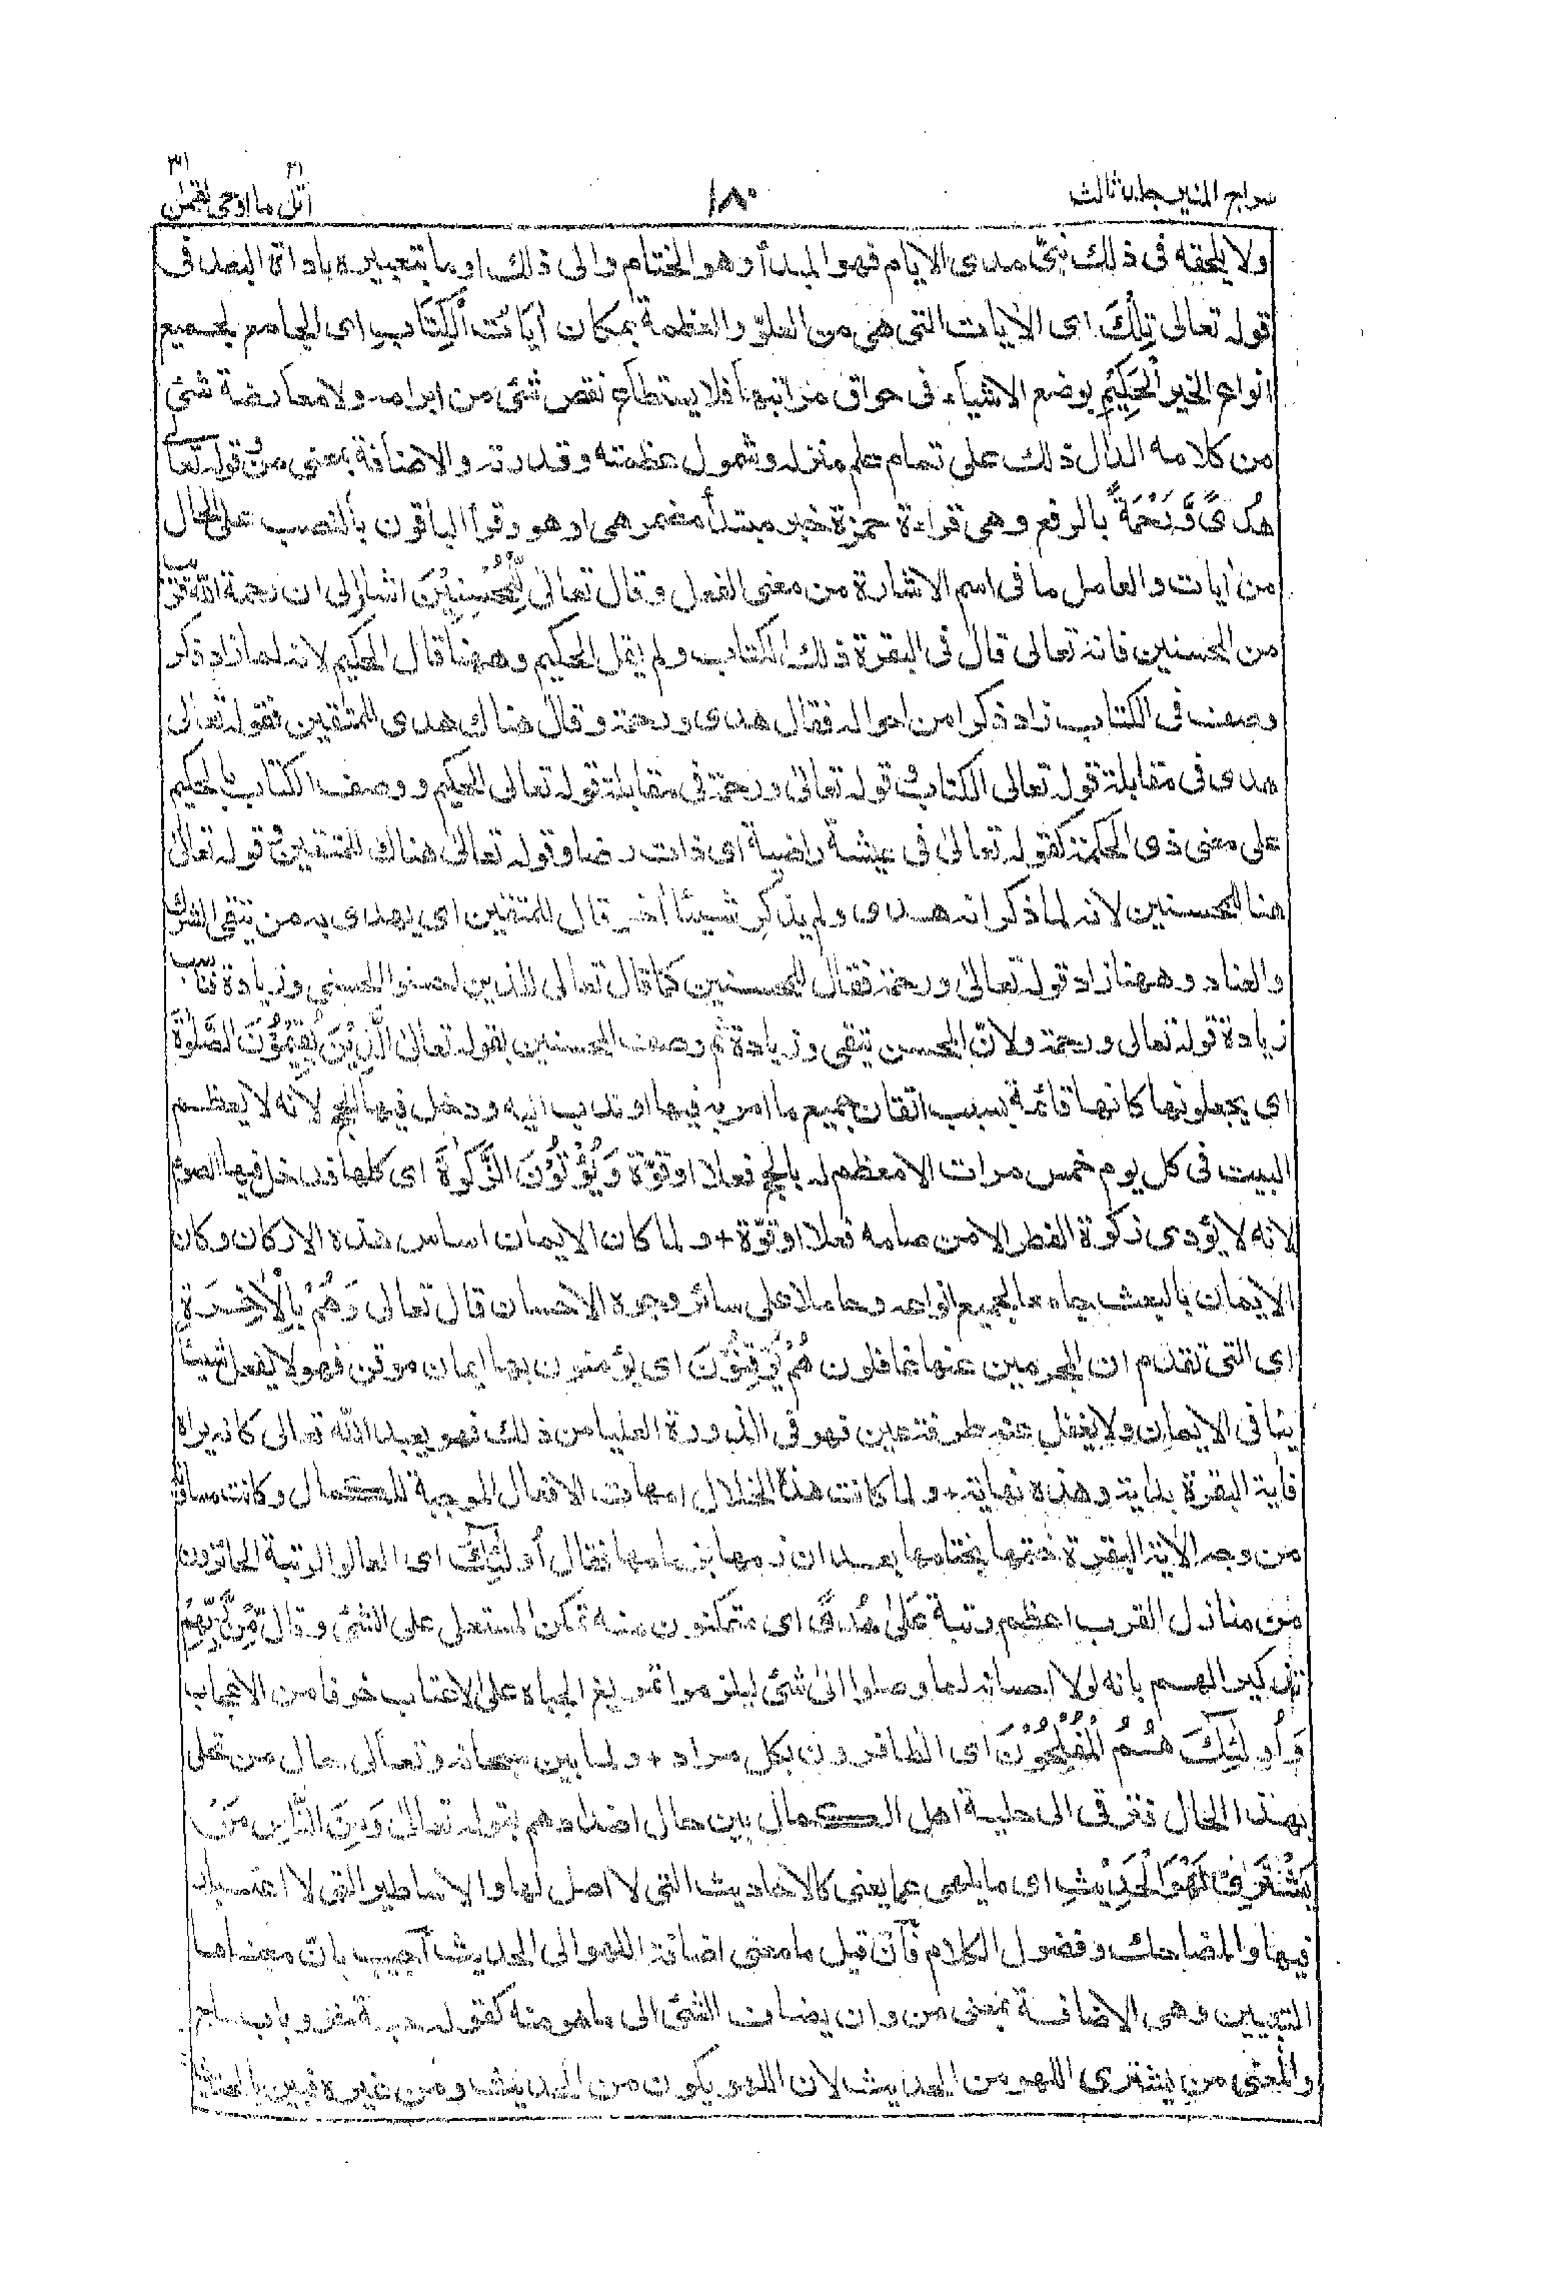 سراج المنير جلد ثالث
١٨٠
اتل ما اوحى ٢١ لقمٰن ٣١
ولا يلحقه فى ذلك نبىّ مدى الايام فهو المبدأ وهو الختام والى ذلك اومأ بتعبيره باداة البعد فى
قوله تعالى تِلْكَ اى الاٰيات التى هى من العلوّ والعظمة بمكان اٰيَاتُ الْكِتَابِ اى الجامع لجميع
انواع الخير الْحَكِيْمِ بوضع الاشياء فى حواق مراتبها فلا يستطاع نقض شئ من ابرامه ولا معارضة شئ
من كلامه الدال ذلك على تمام علم منزله وشمول عظمته وقدرته والاضافة بمعنى من وقوله تعالى
هُدًى وَّرَحْمَةً بالرفع وهى قراءة حمزة خبر مبتدأ مضمر هى او هو وقرأ الباقون بالنصب على الحال
من اٰيات والعامل ما فى اسم الاشارة من معنى الفعل وقال تعالى لِّلْمُحْسِنِيْنَ اشار الى ان رحمة الله قريب
من المحسنين فانه تعالى قال فى البقرة ذلك الكتاب ولم يقل الحكيم وههنا قال الحكيم لانه لما زاد ذكر
وصف فى الكتاب زاد ذكرا من احواله فقال هدى ورحمة وقال هناك هدى للمتقين فقوله تعالى
هدى فى مقابلة قوله تعالى الكتاب وقوله تعالى ورحمة فى مقابلة قوله تعالى الحكيم ووصف الكتاب بالحكيم
على معنى ذى الحكمة كقوله تعالى فى عيشة راضية اى ذات رضا وقوله تعالى هناك للمتقين وقوله تعالى
هنا للمحسنين لانه لما ذكر انه هدى ولم يذكر شيئا اٰخر قال للمتقين اى يهدى به من يتقى الشرك
والعناد وههنا زاد قوله تعالى ورحمة فقال للمحسنين كما قال تعالى للذين احسنوا الحسنى وزيادة فناسب
زيادة قوله تعالى ورحمة ولانّ المحسن يتقى وزيادة ثم وصف المحسنين بقوله تعالى الَّذِيْنَ يُقِيْمُوْنَ الصَّلٰوةَ
اى يجعلونها كانها قائمة بسبب اتقان جميع ما امر به فيها او ندب اليه ودخل فيها الحج لانه لا يعظم
البيت فى كل يوم خمس مرات الا معظم له بالحج فعلا او قوّة وَيُؤْتُوْنَ الزَّكٰوةَ اى كلها فدخل فيها الصوم
لانه لا يؤدى زكوة الفطر الا من صامه فعلا او قوّة + ولما كان الايمان اساس هذه الاركان وكان
الايمان بالبعث جامعا لجميع انواعه وحاملا على سائر وجوه الاحسان قال تعالى وَهُمْ بِالْاٰخِرَةِ
اى التى تقدم ان المجرمين عنها غافلون هُمْ يُوْقِنُوْنَ اى يؤمنون بها ايمان موقن فهو لا يفعل شيئا
ينافى الايمان ولا يغفل عنه طرفة عين فهو فى الذروة العليا من ذلك فهو يعبد الله تعالى كانه يراه
فاٰية البقرة بداية وهذه نهاية + ولما كانت هذه الخلال امهات الافعال الموجبة للكمال وكانت مساوية
من وجه لاٰية البقرة ختمها بختامها بعد ان زمها بزمامها فقال اُولٰٓئِكَ اى العالو الرتبة الحائزون
من منازل القرب اعظم رتبة عَلٰى هُدًى اى متمكنون منه تمكن المستعلى على الشئ وقال مِّنْ رَّبِّهِمْ
تذكيرا لهم بانه لولا احسانه لما وصلوا الى شئ ليلزموا تمريغ الجباه على الاعتاب خوفا من الاعجاب
وَاُولٰٓئِكَ هُمُ الْمُفْلِحُوْنَ اى الظافرون بكل مراد + ولما بين سبحانه وتعالى حال من تحلى
بهذا الحال فترقى الى حلية اهل الكمال بين حال اضدادهم بقوله تعالى وَمِنَ النَّاسِ مَنْ
يَّشْتَرِىْ لَهْوَ الْحَدِيْثِ اى ما يلهى عما يعنى كالاحاديث التى لا اصل لها والاساطير التى لا اعتبار
فيها والمضاحك وفضول الكلام فان قيل ما معنى اضافة اللهو الى الحديث اجيب بان معناها
التبيين وهى الاضافة بمعنى من وان يضاف الشئ الى ما هو منه كقوله جبة خز وباب ساج
والمعنى من يشترى اللهو من الحديث لان اللهو يكون من الحديث ومن غيره فبين بالحديث